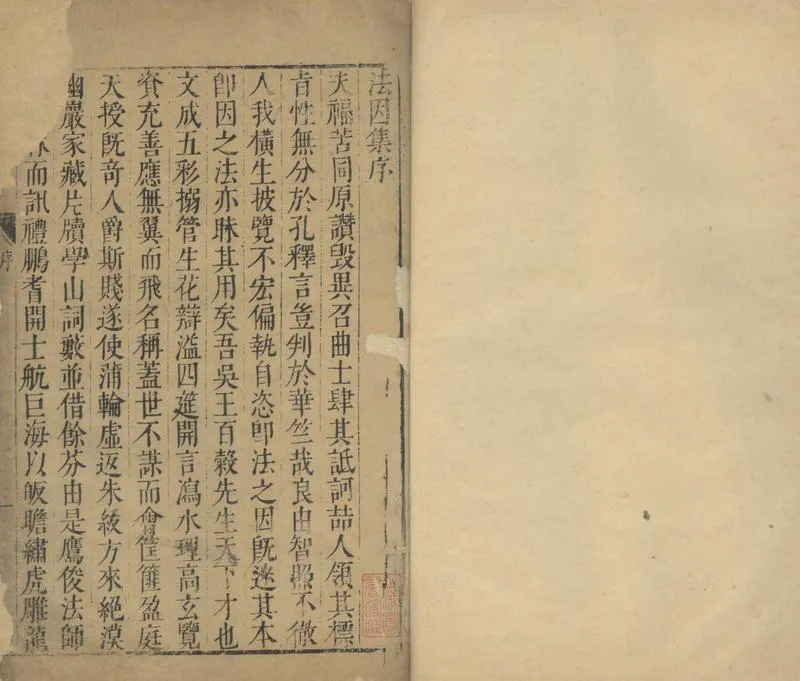 法因集序
夫福苦同原讚毀異召曲士肆其詆訶喆人領其標
旨性無分於孔釋言豈判於華竺哉良由智照不徹
人我橫生披覽不宏偏執自恣卽法之因旣迷其本
卽因之法亦昧其用矣吾吳王百穀先生天下才也
文成五彩搦管生花辯溢四筵開言瀉水理高玄覽
資充善應無翼而飛名稱蓋世不謀而會筐篚盈庭
天授旣奇人爵斯賤遂使蒲輪虛返朱紱方來絕漠
幽巖家藏片牘學山詞藪並借餘芬由是鷹俊法師
而訊禮鵬耆開士航巨海以皈瞻繡虎雕龍
序
一